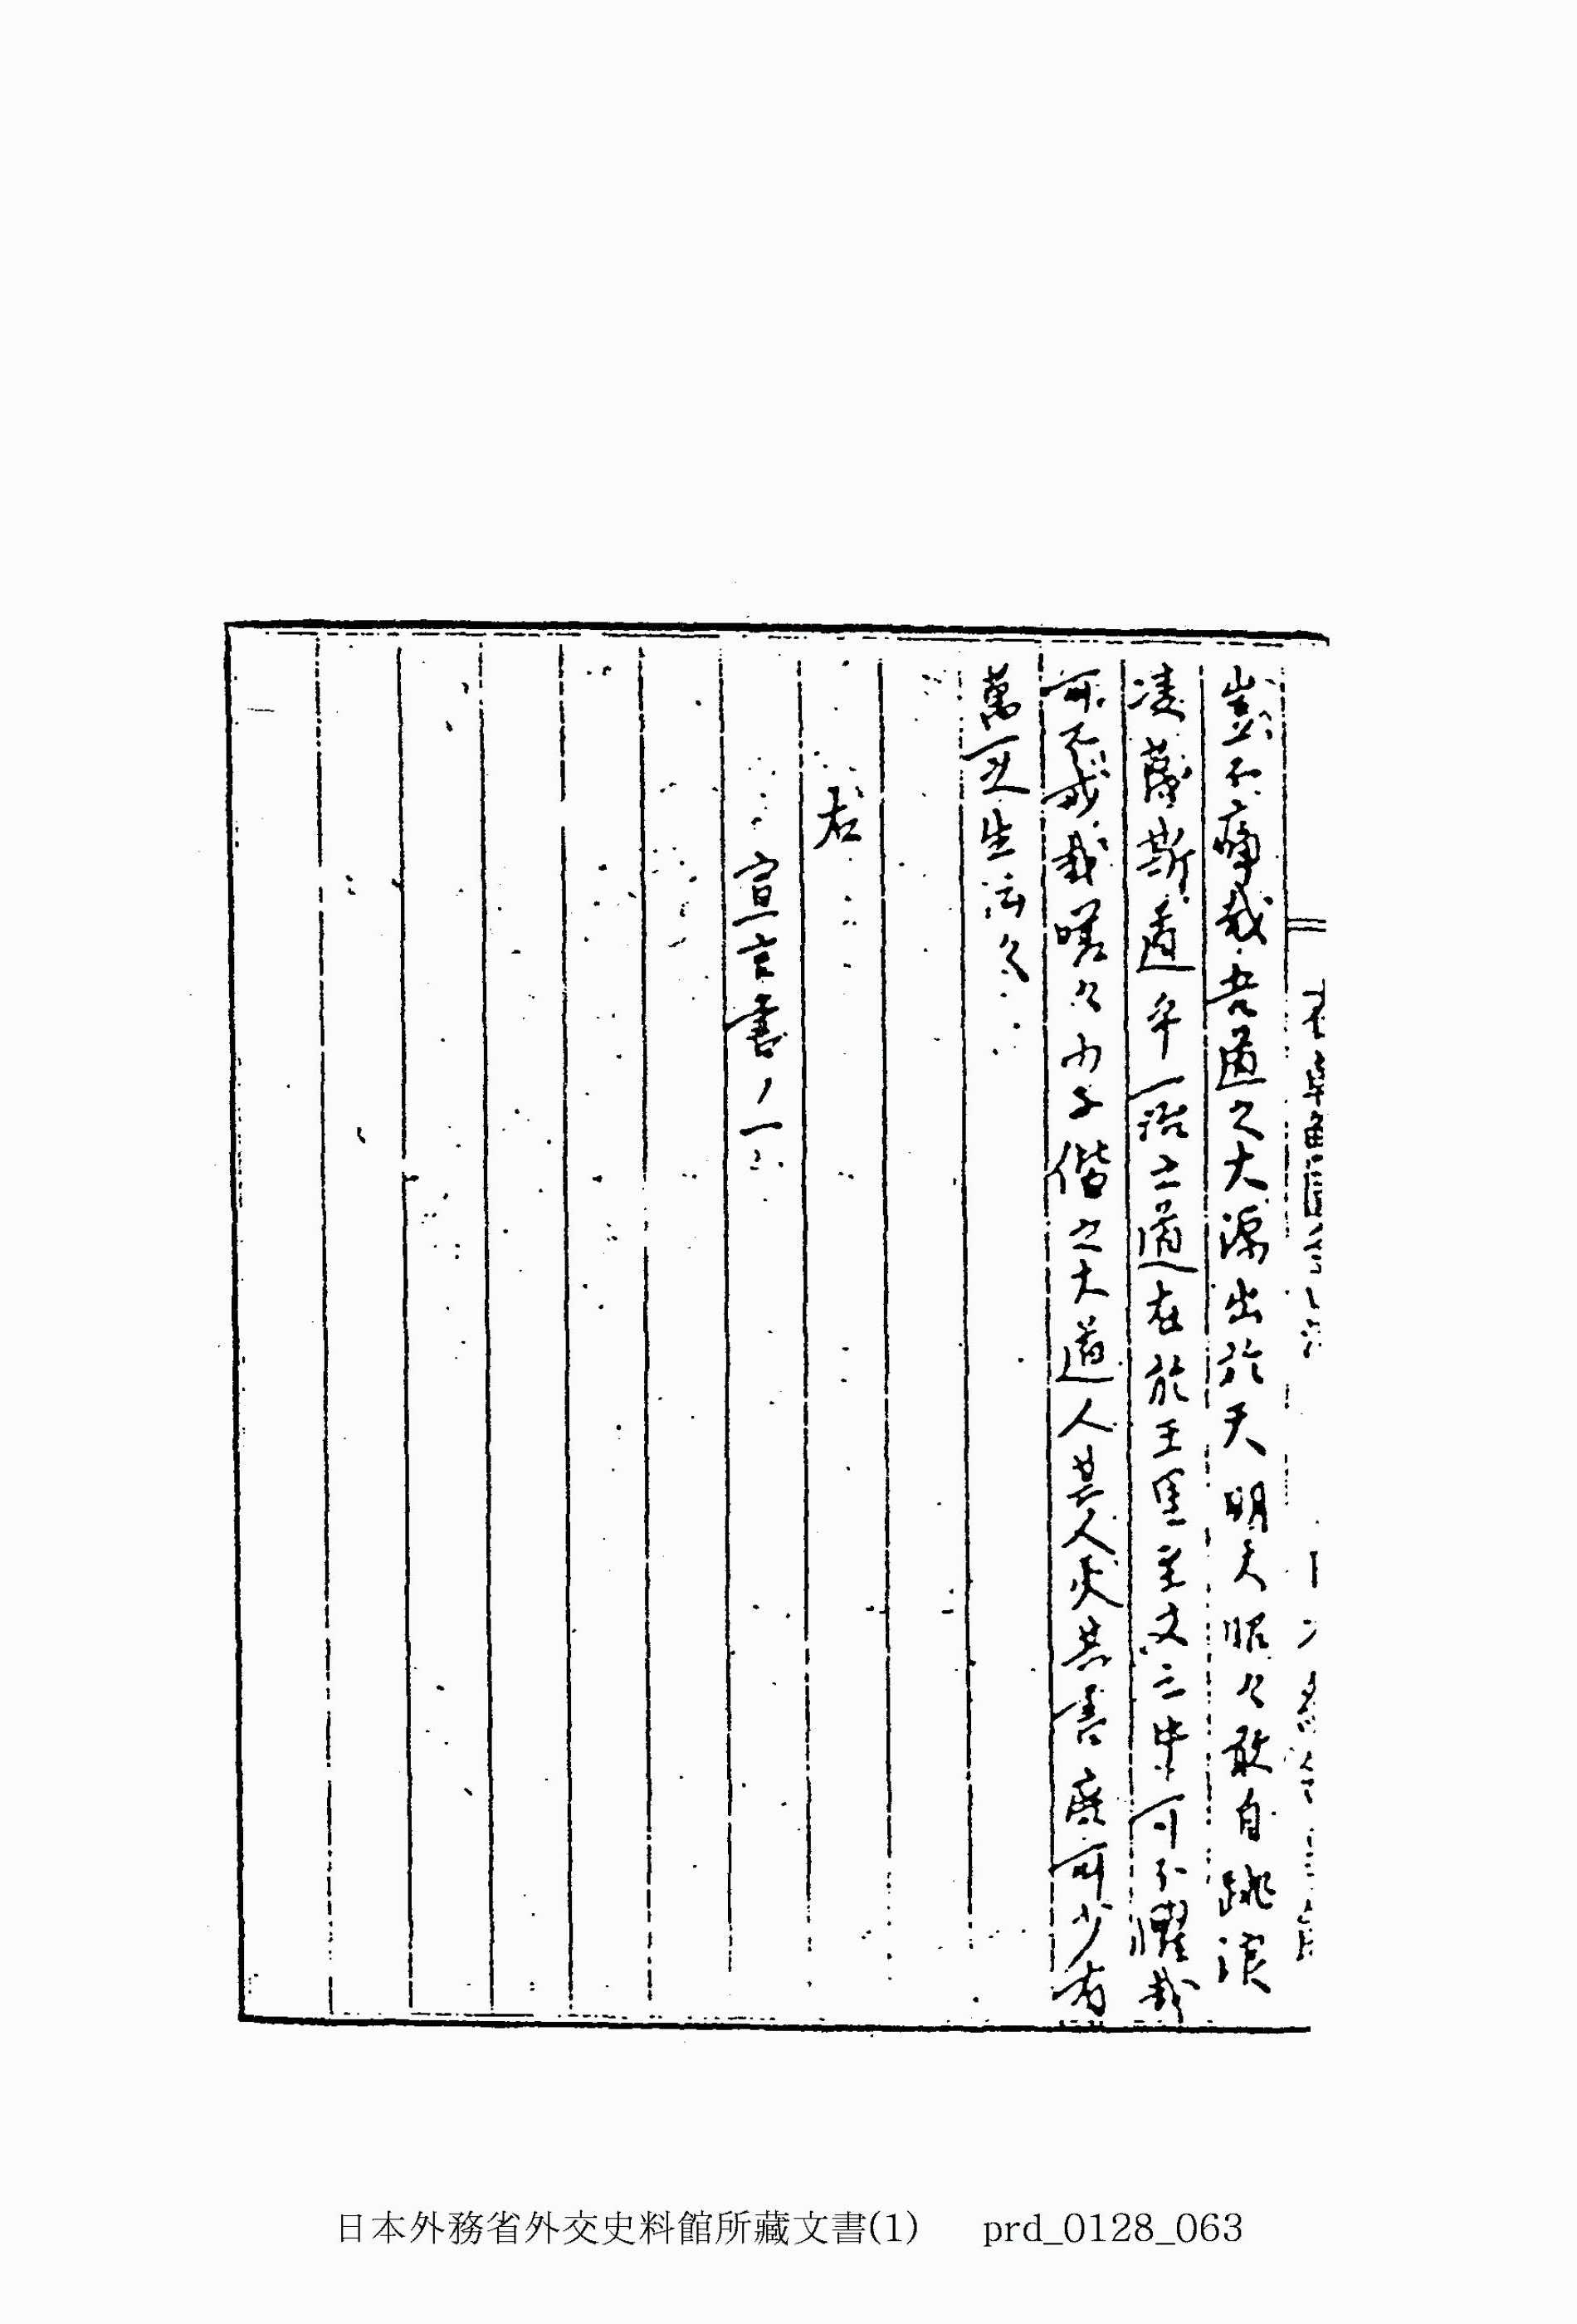 豈不痛哉吾道之大源出於天明天昭々敢自跳浪
凌蔑斯道乎一治之道在於王 主文之中可不懼哉
可不戒哉嗟々小子偕之大道人其人火其書庶可少有
萬一生活久
右
宣言書ノ一
日本外務省外交史料館所藏文書(1) prd_0128_063